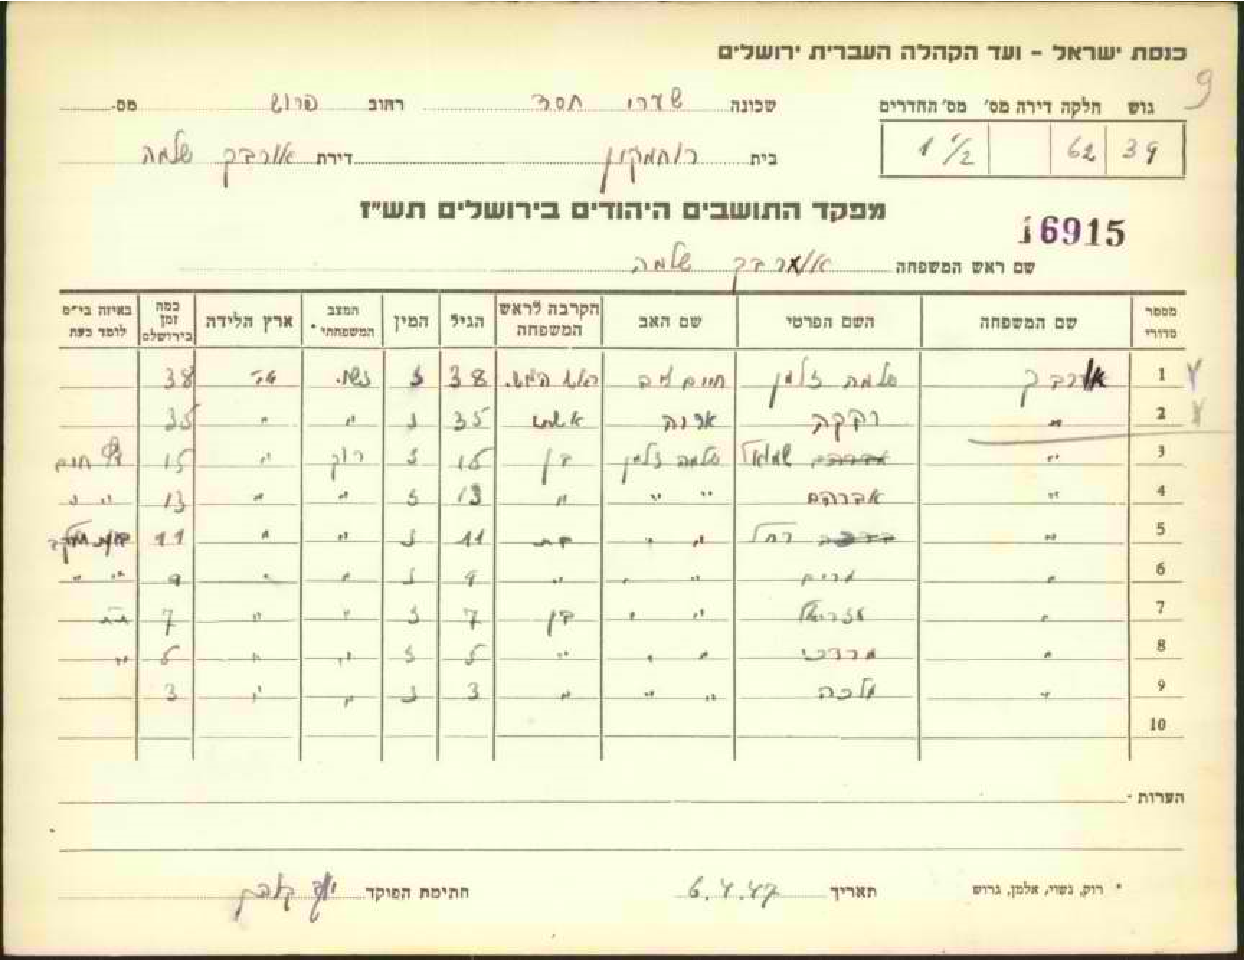 כנסת ישראל - ועד הקהלה העברית ירושלים
9
גוש חלקה דירה מס' מס' החדרים
39 62 1 1/2
שכונה שערי חסד רחוב פרוש מס.
בית רוחמקין דירת אורבך שלמה
מפקד התושבים היהודים בירושלים תש"ז
16915
שם ראש המשפחה אורבך שלמה
מספר סדורי שם המשפחה השם הפרטי שם האב הקרבה לראש המשפחה הגיל המין המצב המשפחתי* ארץ הלידה כמה זמן בירושלם באיזה בי"ס לומד כעת
1 אורבך שלמה זלמן חיים ליב ראש המש. 38 ז נשוי א"י 38
2 " רבקה אריה אשתו 35 נ " " 35
3 " אברהם שמואל שלמה זלמן בן 15 ז רוק " 15 עץ חיים
4 " אברהם " " " 13 ז " " 13 " "
5 " רחל " " בת 11 נ " " 11
6 " מרים " " " 9 נ " " 9 " "
7 " עזריאל " " בן 7 ז " " 7 ת"ת
8 " מרדכי " " " 5 ז " " 5 "
9 " מלכה " " " 3 נ " " 3
10
הערות -
* רוק, נשוי, אלמן, גרוש תאריך 6.4.47 חתימת הפוקד